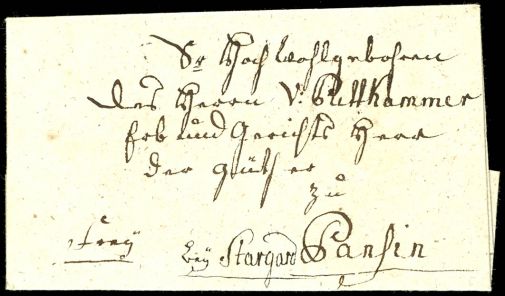 Sr Hochwohlgebohren
des Herrn v: Puttkammer
Erb und Gerichts Herr
der Güther
zu
Frey
bey Stargard Pansin